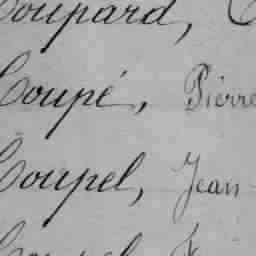 Coupard,
Coupé, Pierre
Coupel, Jean